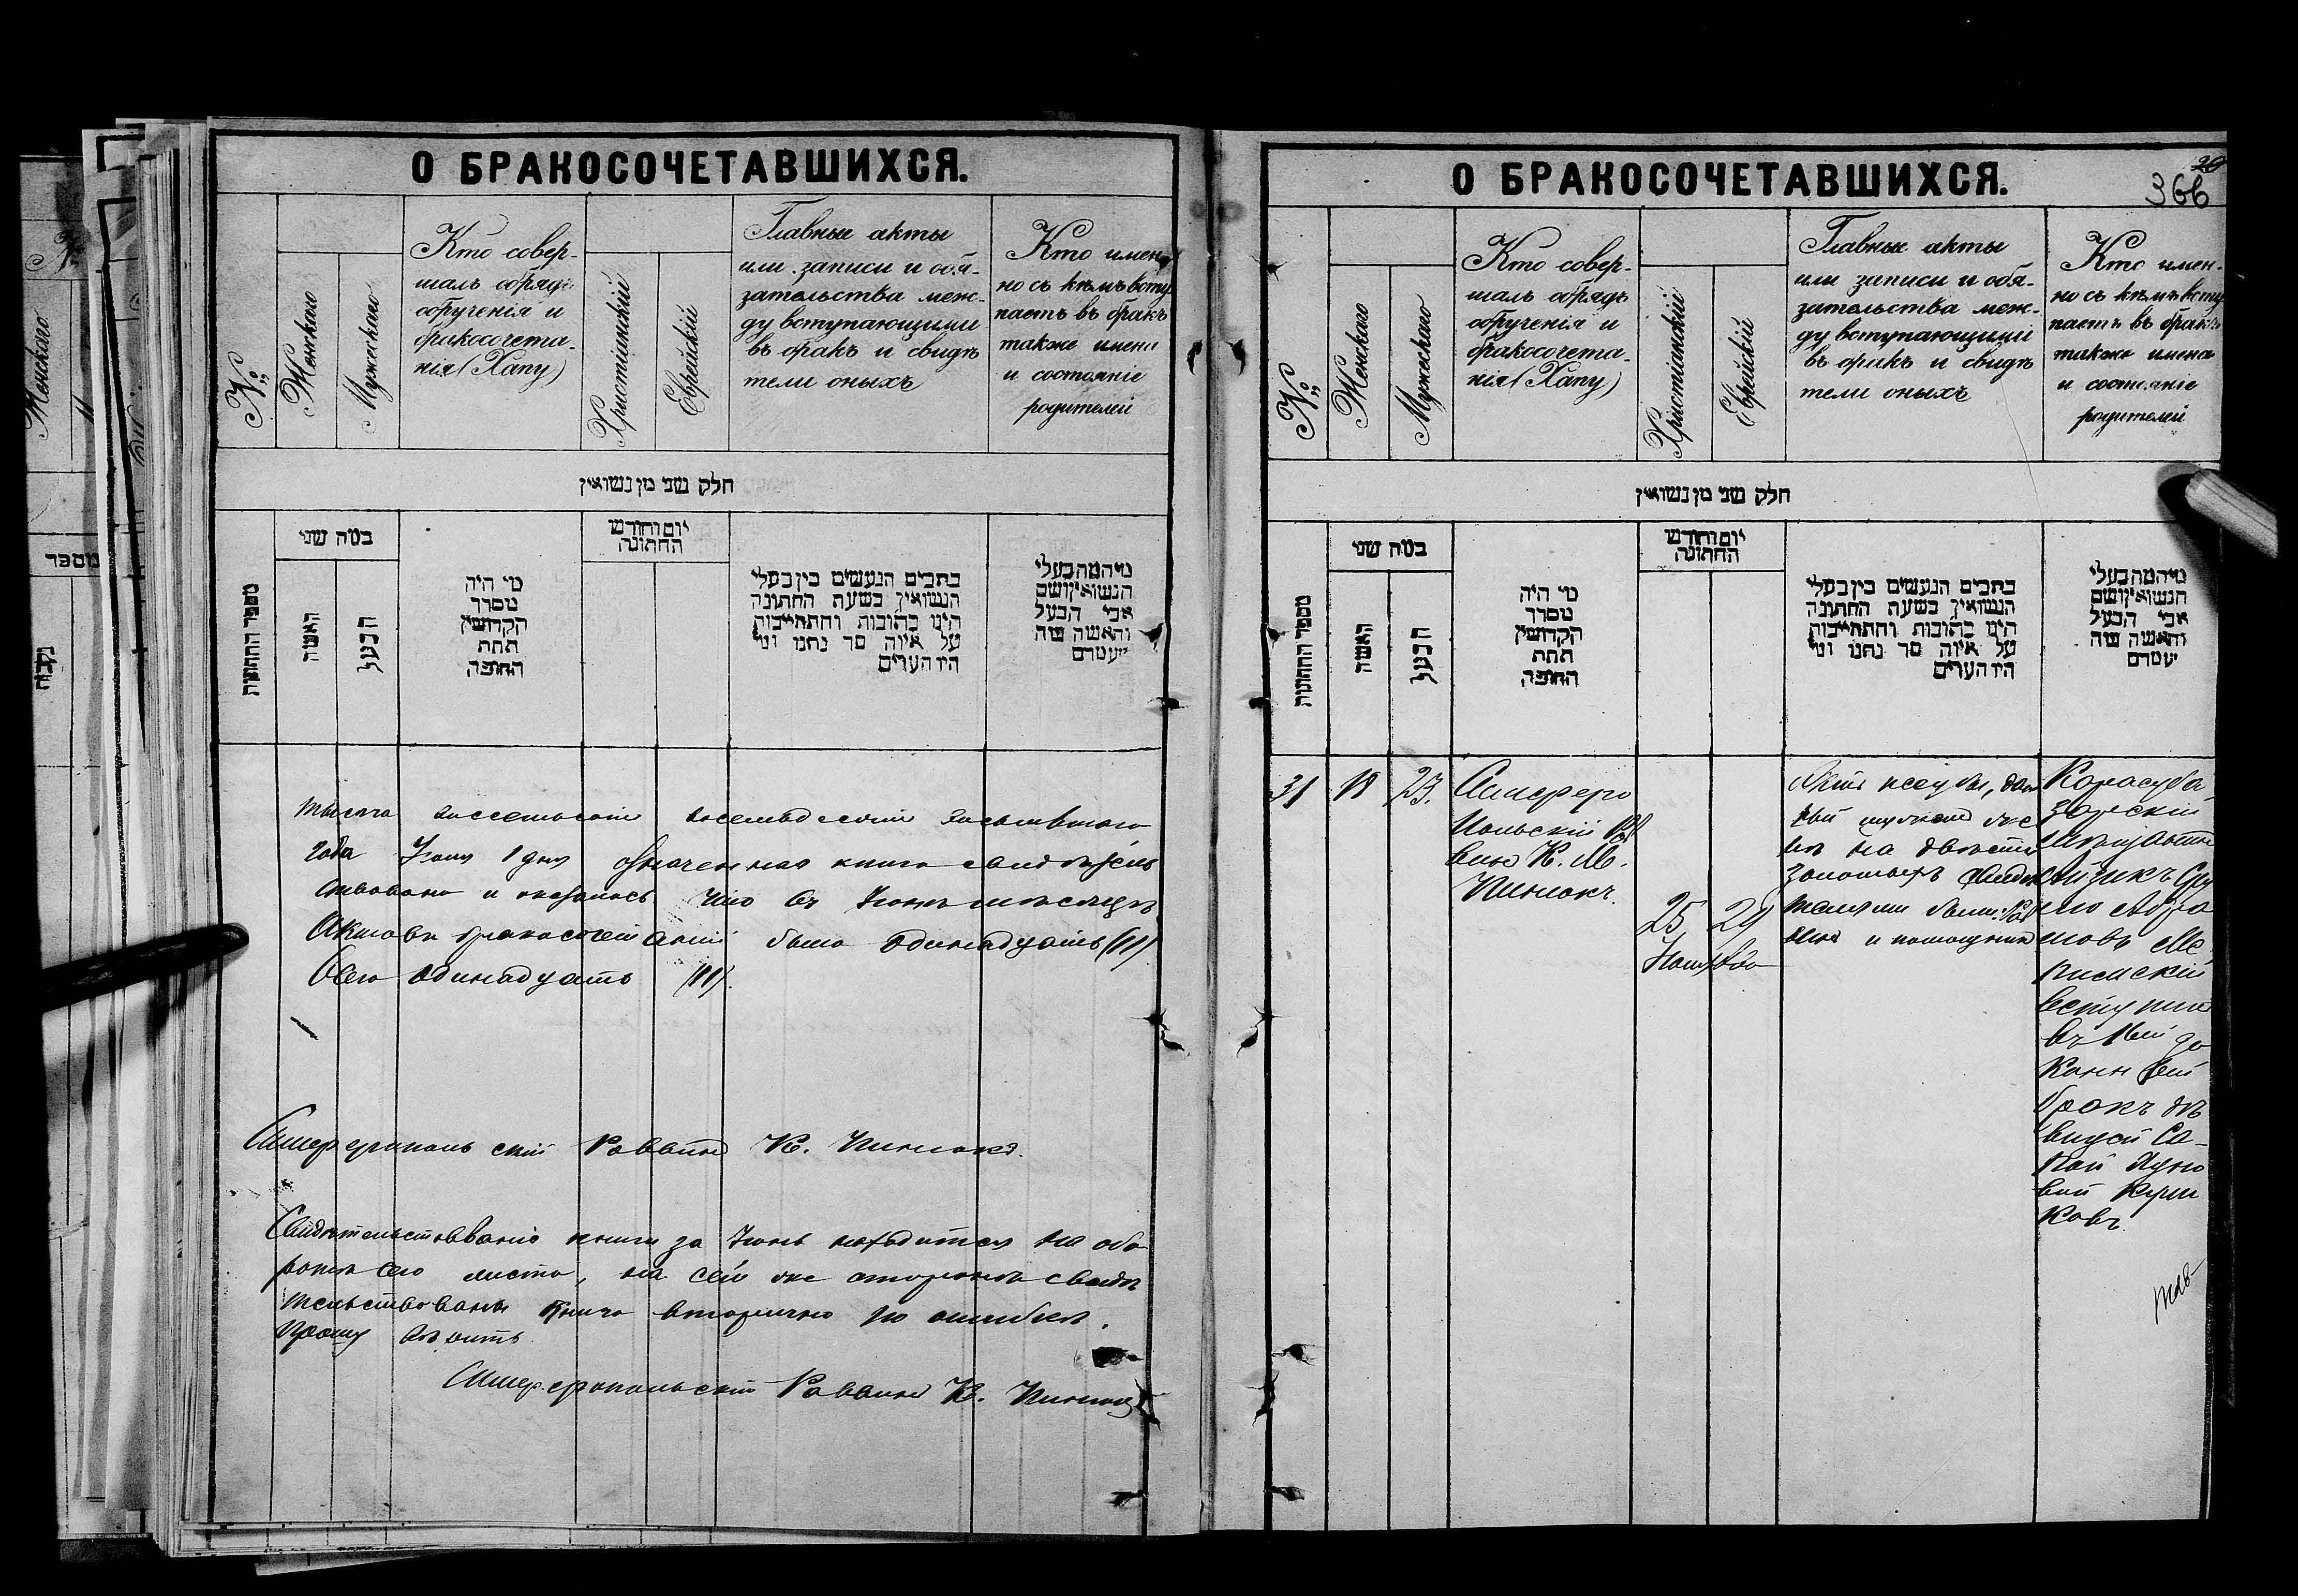 О БРАКОСОЧЕТАВШИХСЯ.
№
Женскаго
Мужескаго
Кто совер-
шалъ обрядъ
обрученія и
бракосочета-
нія (Хапу)
Христіанскій
Еврейскій
Главные акты
или записи и обя-
зательства меж-
ду вступающими
въ бракъ и свидѣ
тели оныхъ
Кто имен
но съ кѣмъ всту
паетъ въ бракъ
также имена
и состояніе
родителей
חלק שני מן נשואין
מספר החתונות
כמה שני
האשה
הבעל
מי היה
מסדר
הקדושין
תחת
החופה
יום וחודש
החתונה
כתבים הנעשים בין בעלי
הנשואין בשעת החתונה
היינו כתובות והתחייבות
על איזה סך נתנו ומי
היו העדים
מי המה בעלי
הנשואין ושם
אבי הבעל
והאשה ומה
מעמדם
тысяча восемьсотъ восемьдесятъ восьмаго
года Іюня 1 дня означенная книга свидѣтель
ствована и оказалось что въ Іюнѣ мѣсяцѣ
Актовъ бракосочетаній было одинадцать (11)
Всего одинадцать (11).
Симферопольскій Раввинъ К. Пинмокъ.
Свидѣтельствованіе книги за Іюнь находится на обо
ротѣ сего листа, на сей же сторонѣ свидѣ
тельствована книга вторично по ошибкѣ.
Прошу вѣрить
Симферопольскій Раввинъ К. Пинмокъ
О БРАКОСОЧЕТАВШИХСЯ.
20
366
№
Женскаго
Мужескаго
Кто совер-
шалъ обрядъ
обрученія и
бракосочета-
нія (Хапу)
Христіанскій
Еврейскій
Главные акты
или записи и обя-
зательства меж-
ду вступающими
въ бракъ и свидѣ
тели оныхъ
Кто имен-
но съ кѣмъ всту
паетъ въ бракъ
также имена
и состояніе
родителей
חלק שני מן נשואין
מספר החתונות
כמה שני
האשה
הבעל
מי היה
מסדר
הקדושין
תחת
החופה
יום וחודש
החתונה
כתבים הנעשים בין בעלי
הנשואין בשעת החתונה
היינו כתובות והתחייבות
על איזה סך נתנו ומי
היו העדים
מי המה בעלי
הנשואין ושם
אבי הבעל
והאשה ומה
מעמדם
31
18
23.
Симферо
польскій Рав
винъ К. М.
Пинмокъ.
25
Іюня
29
Актъ ксубы, дан
ный мужемъ же
нѣ на двѣсти
золотыхъ свидѣ
телями были: Рав
винъ и помощникъ
Карасуба
зарскій
мѣщанинъ
Айзикъ Сру
лю Абра
мовъ
вступилъ
въ 1ый за
конный
бракъ дѣ
вицей Са-
рой
вой
ковъ